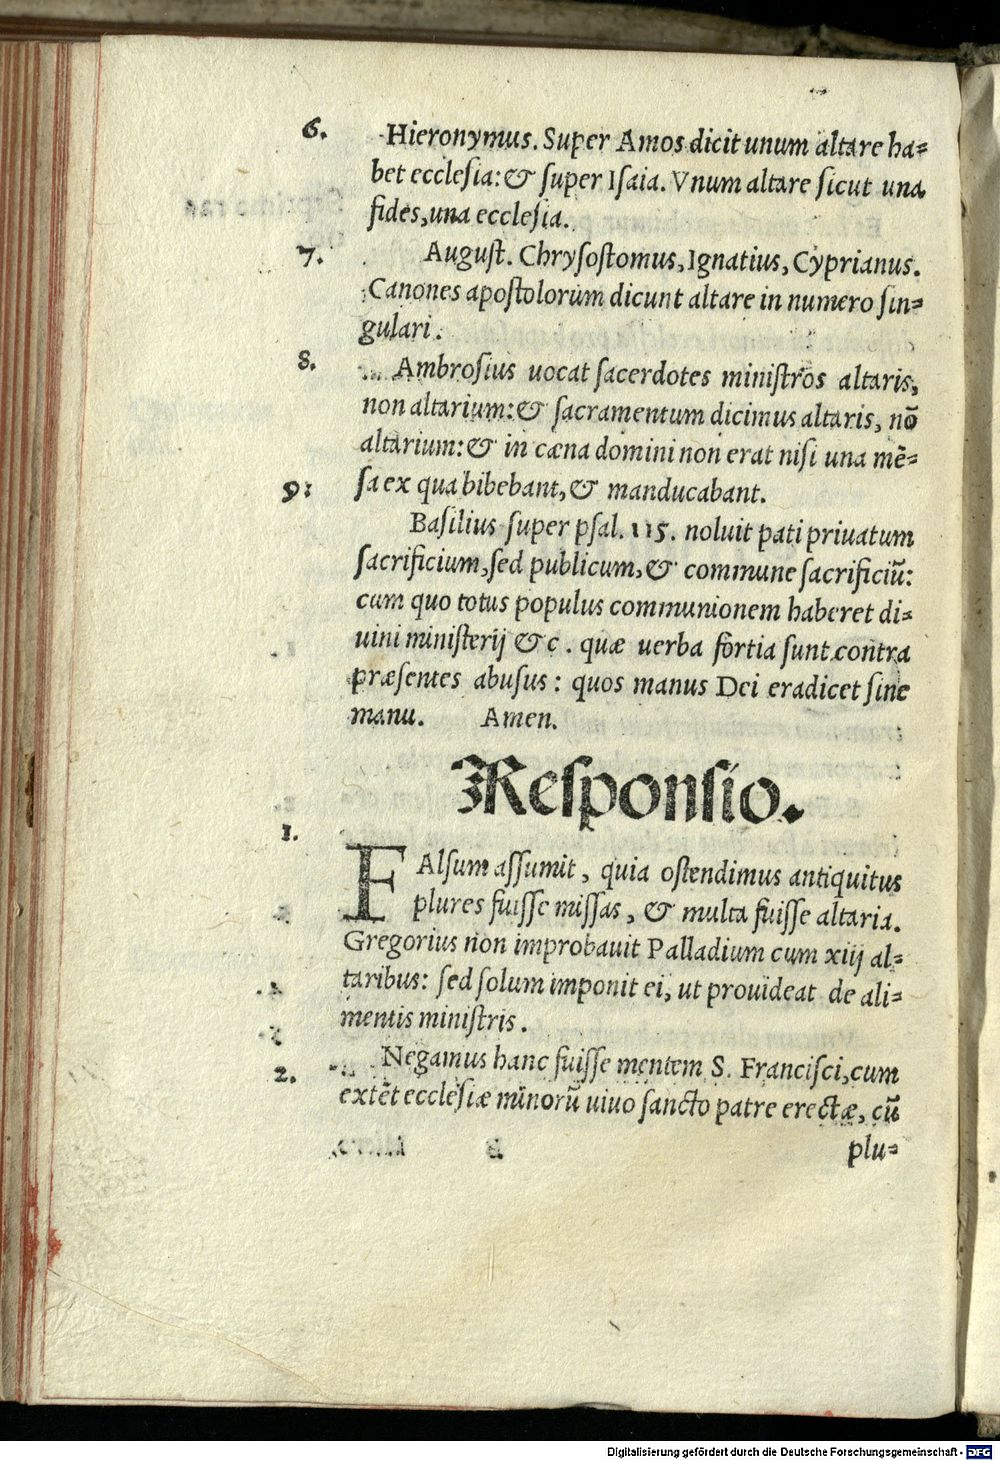 6. Hieronymus. Super Amos dicit unum altare ha=
bet ecclesia: & super Isaia. Vnum altare sicut una
fides, una ecclesia.
7. August. Chrysostomus, Ignatius, Cyprianus.
Canones apostolorum dicunt altare in numero sin=
gulari.
8. Ambrosius uocat sacerdotes ministros altaris,
non altarium: & sacramentum dicimus altaris, nō
altarium: & in cæna domini non erat nisi una mē=
sa ex qua bibebant, & manducabant.
9: Basilius super psal. 115. noluit pati priuatum
sacrificium, sed publicum, & commune sacrificiū:
cum quo totus populus communionem haberet di=
uini ministerij &c. quæ uerba fortia sunt contra
præsentes abusus: quos manus Dei eradicet sine
manu. Amen.
Responsio.
1. FAlsum assumit, quia ostendimus antiquitus
plures fuisse missas, & multa fuisse altaria.
Gregorius non improbauit Palladium cum xiij al=
taribus: sed solum imponit ei, ut prouideat de ali=
mentis ministris.
2. Negamus hanc fuisse mentem S. Francisci, cum
extēt ecclesiæ minorū uiuo sancto patre erectæ, cū
plu=
Digitalisierung gefördert durch die Deutsche Forschungsgemeinschaft - DFG